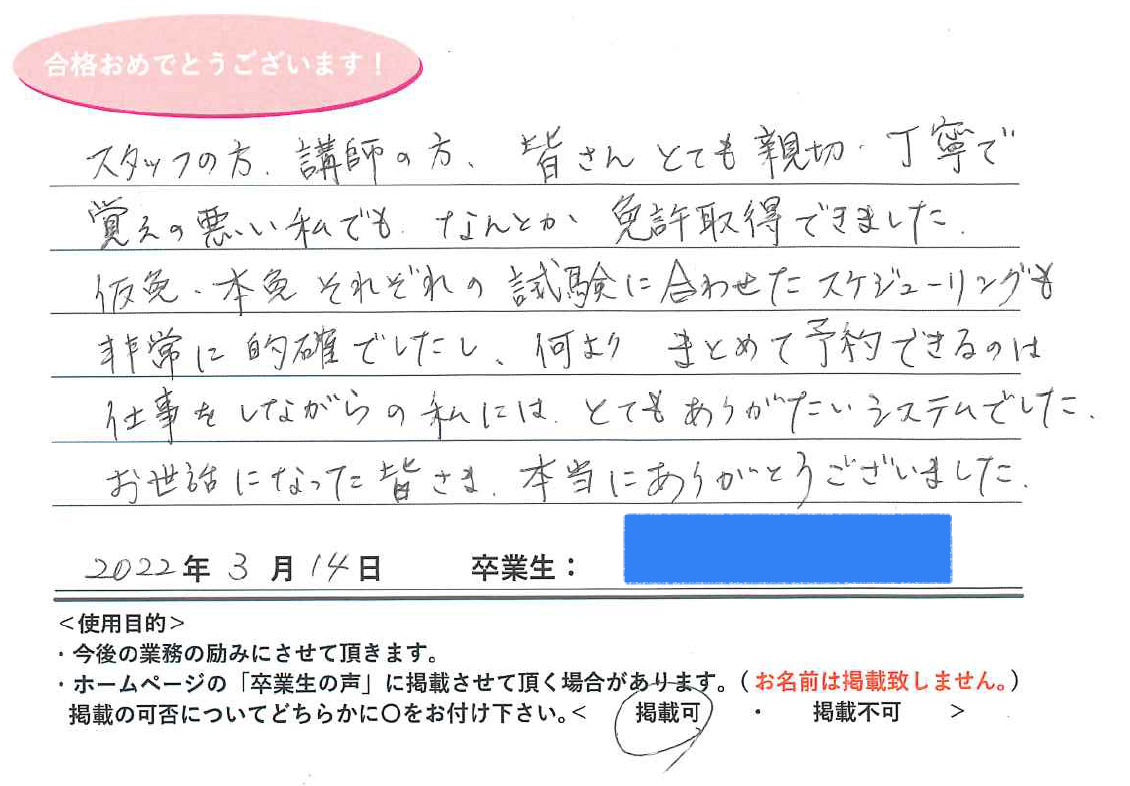 合格おめでとうございます！
スタッフの方、講師の方、皆さんとても親切・丁寧で
覚えの悪い私でも、なんとか免許取得できました。
仮免・本免それぞれの試験に合わせたスケジューリングも
非常に的確でしたし、何よりまとめて予約できるのは
仕事をしながらの私には、とてもありがたいシステムでした。
お世話になった皆さま、本当にありがとうございました。
2022年3月14日 卒業生：
＜使用目的＞
・今後の業務の励みにさせて頂きます。
・ホームページの「卒業生の声」に掲載させて頂く場合があります。（お名前は掲載致しません。）
掲載の可否についてどちらかに〇をお付け下さい。＜ 掲載可 ・ 掲載不可 ＞